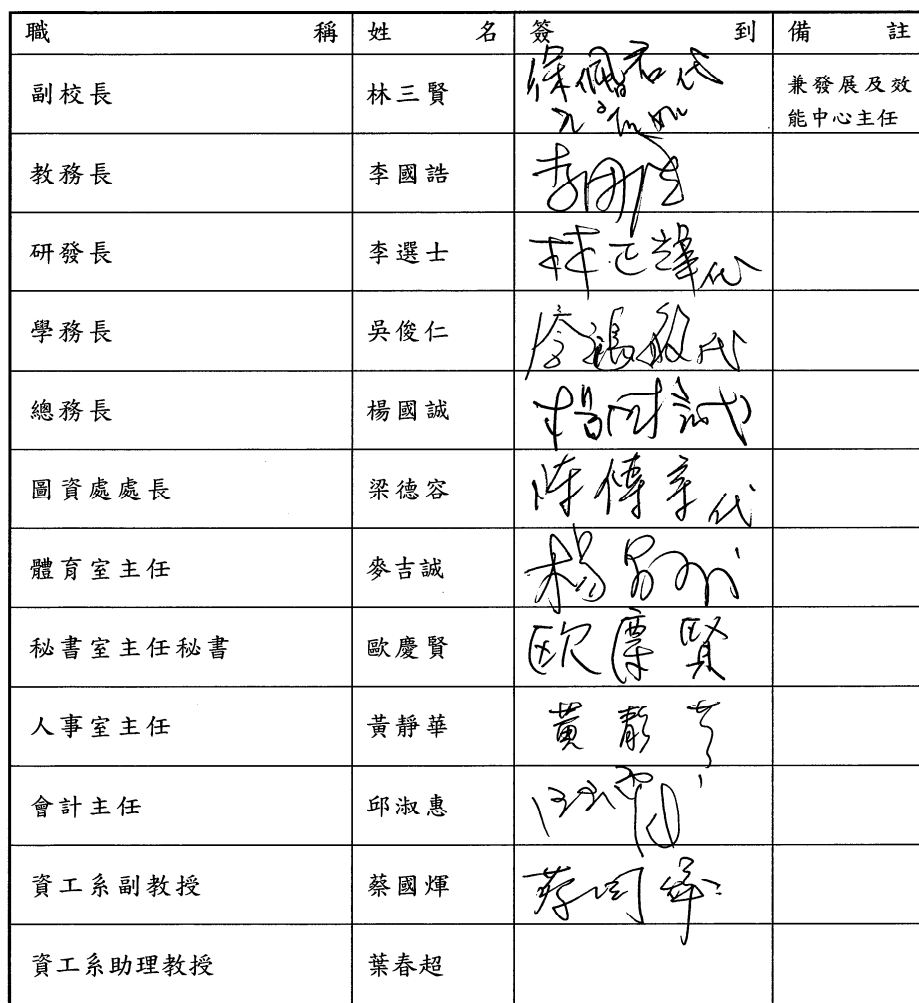 職稱 姓名 簽到 備註
副校長 林三賢 代 兼發展及效
能中心主任
教務長 李國誥 李國
研發長 李選士 林正輝代
學務長 吳俊仁 代
總務長 楊國誠 楊國誠
圖資處處長 梁德容 陳傳宗代
體育室主任 麥吉誠 楊
秘書室主任秘書 歐慶賢 歐慶賢
人事室主任 黃靜華 黃靜
會計主任 邱淑惠
資工系副教授 蔡國煇 蔡國煇
資工系助理教授 葉春超